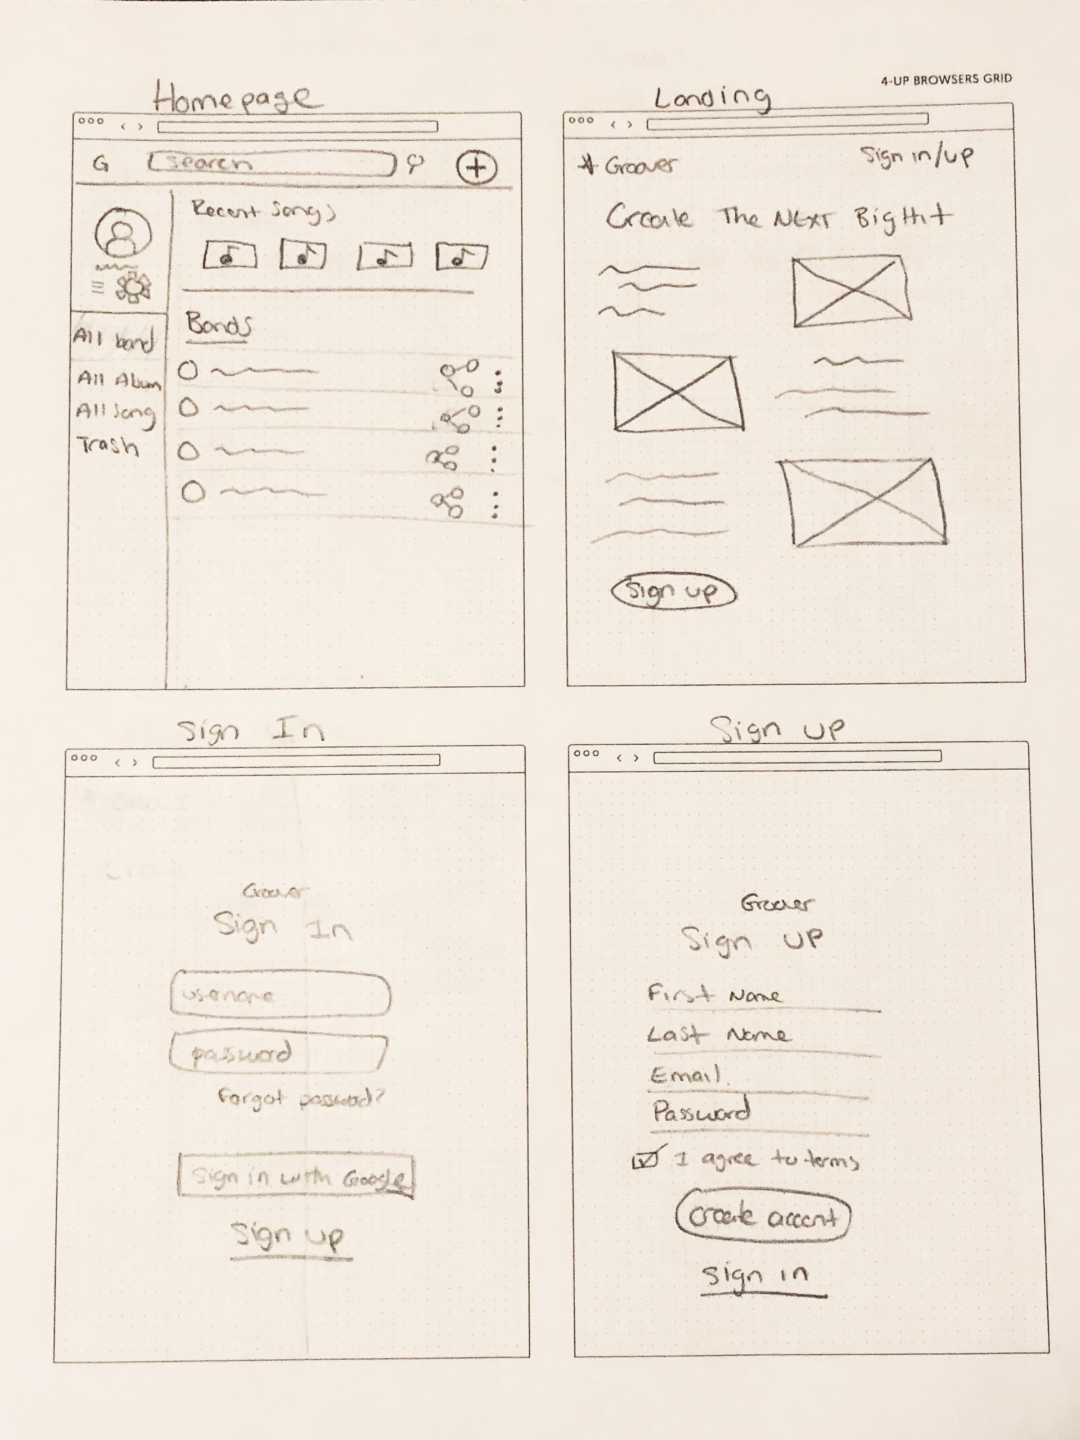 4-UP BROWSERS GRID
Homepage
G search
Recent Songs
Bands
All band
All Album
All Song
Trash
Landing
Groover
Sign in/up
Create The NExT Big Hit
Sign up
Sign In
Groover
Sign In
username
password
Forgot password?
Sign in with Google
Sign up
Sign up
Groover
Sign up
First Name
Last Name
Email
Password
I agree to terms
Create account
Sign in